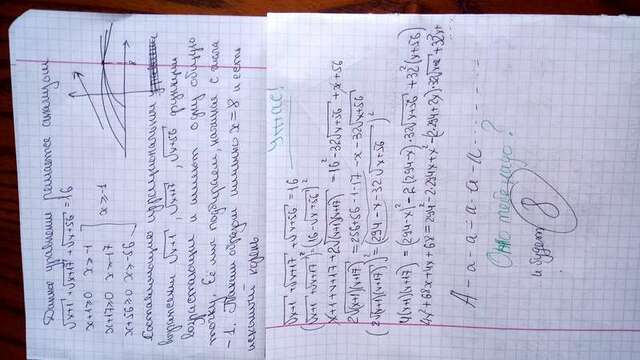 Данное уравнение решается анализом
√x+1 + √x+17 + √x+56 = 16
x+1≥0 x≥-1
x+17≥0 x≥-17
x+56≥0 x≥-56
x≥-1
Составляющие иррациональным
выражения √x+1, √x+17, √x+56 функции
возрастающие и имеют одну общую
точку. Её мы подбираем начиная с числа
-1. Таким образом именно x=8 и есть
искомый корень
Ужас!
√x+1 + √x+17 + √x+56 = 16
(√x+1 + √x+17)² = (16-√x+56)²
x+1+x+17+2√(x+1)(x+17) = 16²-32√x+56 + x+56
2√(x+1)(x+17) = 256+56-1-17-x-32√x+56
(2√(x+1)(x+17))² = (294-x-32√x+56)²
4(x+1)(x+17) = (294-x)²-2(294-x)·32√x+56+32²(x+56)
4x²+68x+4x+68=294²-2·294x+x²-(294+2x)·32√x+56+32²x+
А-а-а-а-а-а-а
Оно тебе надо?
и будет 8